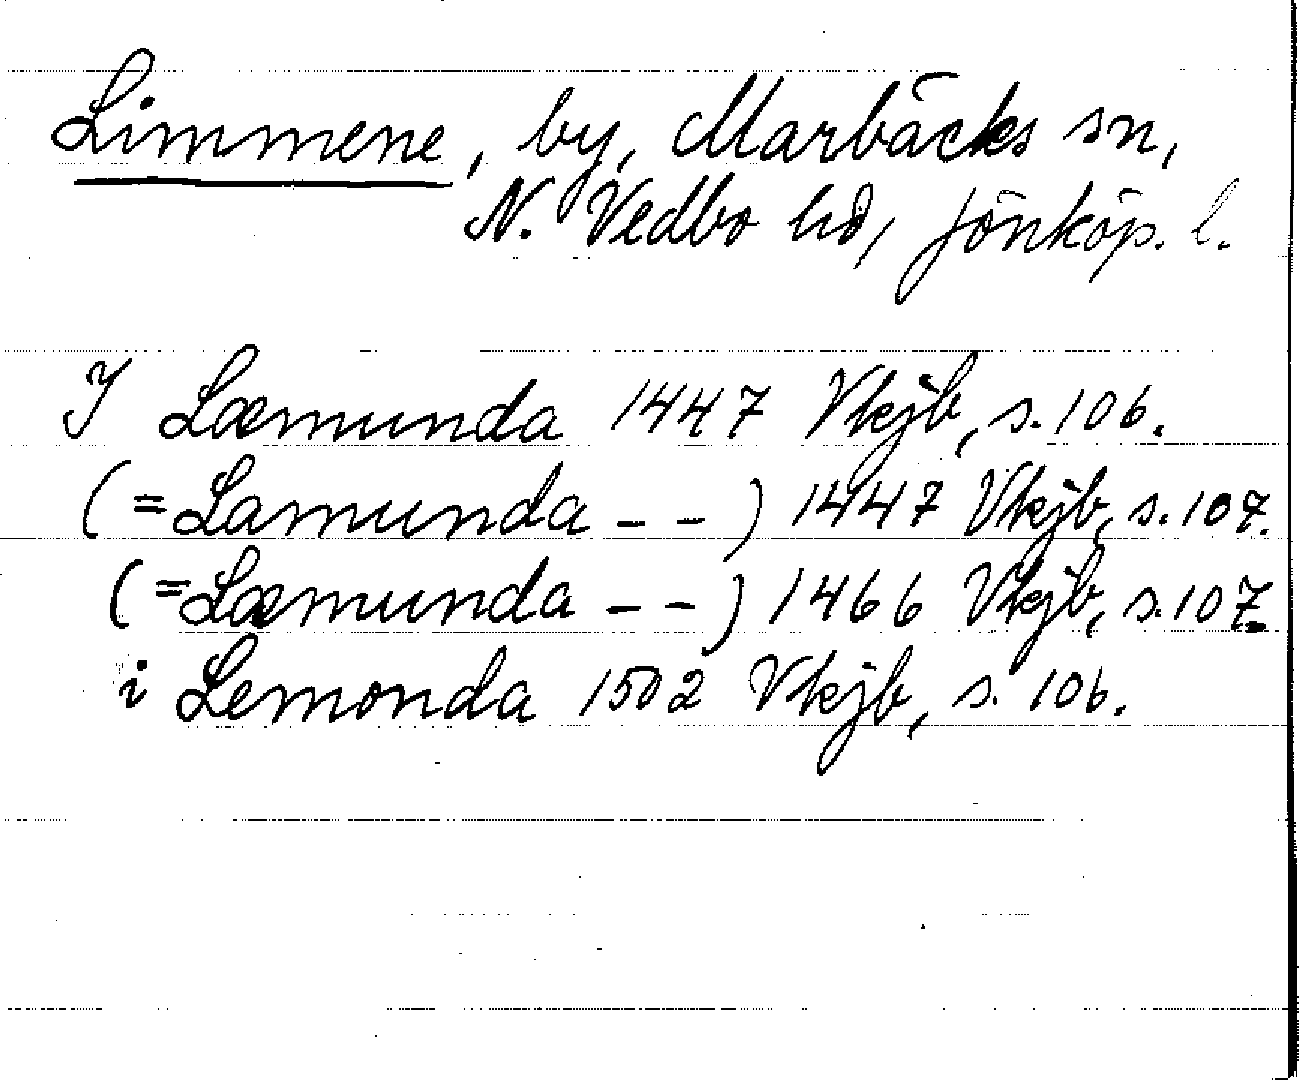 Limmene, by, Marbäcks sn,
N. Vedbo hd, Jönköp. l.
I Læmunda 1447 Vkjb, s. 106.
(=Lamunda - - ) 1447 Vkjb, s. 107.
(=Læmunda - - ) 1466 Vkjb, s. 107.
i Lemonda 1502 Vkjb, s. 106.